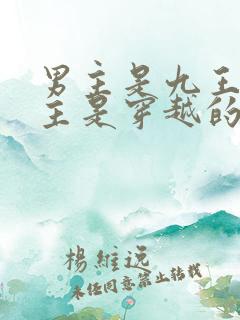 男主是九王
主是穿越的
杨维远
未经同意禁止转载